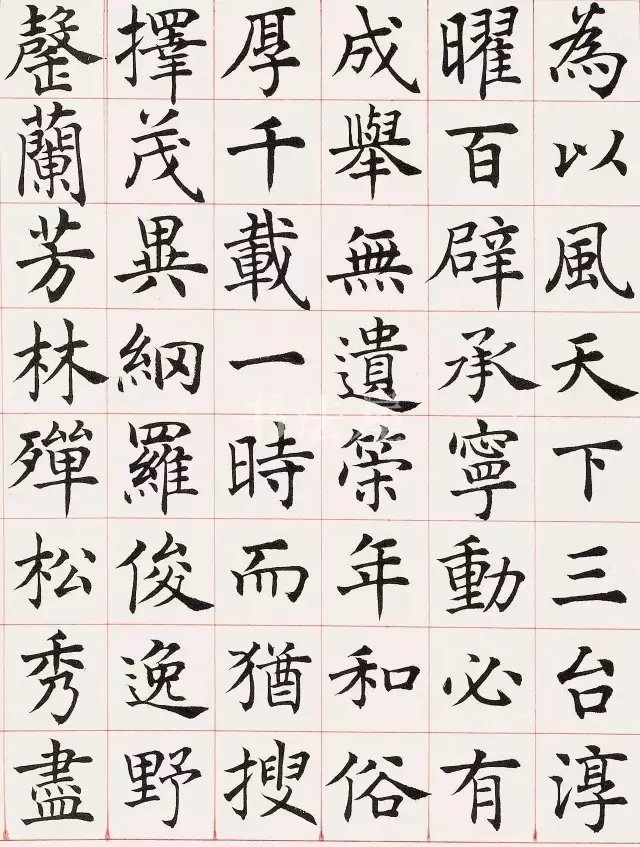 為以風天下三台淳
曜百辟承寧動必有
成舉無遺策年和俗
厚千載一時而猶搜
擇茂異網羅俊逸野
罄蘭芳林殫松秀盡